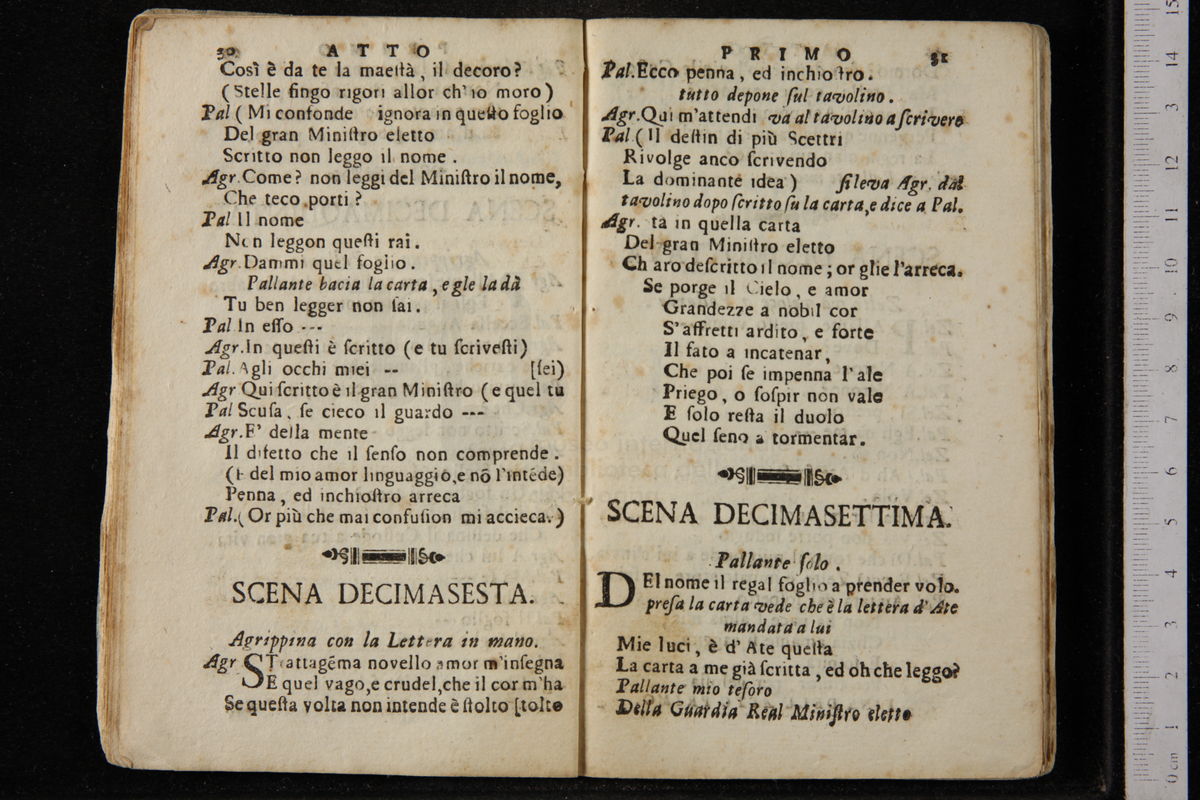 30 ATTO
Così è da te la maeſtà, il decoro?
(Stelle fingo rigori allor ch'io moro)
Pal (Mi confonde ignora in queſto foglio
Del gran Miniſtro eletto
Scritto non leggo il nome.
Agr. Come? non leggi del Miniſtro il nome,
Che teco porti?
Pal Il nome
Non leggon queſti rai.
Agr. Dammi quel foglio.
Pallante bacia la carta, e gle la dà
Tu ben legger non ſai.
Pal In eſſo ---
Agr. In queſti è ſcritto (e tu ſcriveſti)
Pal. Agli occhi miei -- [ſei)
Agr Qui ſcritto è il gran Miniſtro (e quel tu
Pal Scuſa, ſe cieco il guardo ---
Agr. E' della mente
Il difetto che il ſenſo non comprende.
(E del mio amor linguaggio, e nõ l'intéde)
Penna, ed inchioſtro arreca
Pal. (Or più che mai confuſion mi accieca.)
SCENA DECIMASESTA.
Agrippina con la Lettera in mano.
Agr STrattagéma novello amor m'inſegna
E quel vago, e crudel, che il cor m'ha
Se queſta volta non intende è ſtolto [tolto
PRIMO 31
Pal. Ecco penna, ed inchioſtro.
tutto depone ſul tavolino.
Agr. Qui m'attendi va al tavolino a ſcrivere
Pal (Il deſtin di più Scettri
Rivolge anco ſcrivendo
La dominante idea) ſileva Agr. dal
tavolino dopo ſcritto ſu la carta, e dice a Pal.
Agr. ta in quella carta
Del gran Miniſtro eletto
Ch aro deſcritto il nome; or glie l'arreca.
Se porge il Cielo, e amor
Grandezze a nobil cor
S'affretti ardito, e forte
Il fato a incatenar,
Che poi ſe impenna l'ale
Priego, o ſoſpir non vale
E ſolo reſta il duolo
Quel ſeno a tormentar.
SCENA DECIMASETTIMA.
Pallante ſolo.
DEl nome il regal foglio a prender volo.
preſa la carta vede che è la lettera d'Ate
mandata a lui
Mie luci, è d'Ate queſta
La carta a me già ſcritta, ed oh che leggo?
Pallante mio teſoro
Della Guardia Real Miniſtro eletto